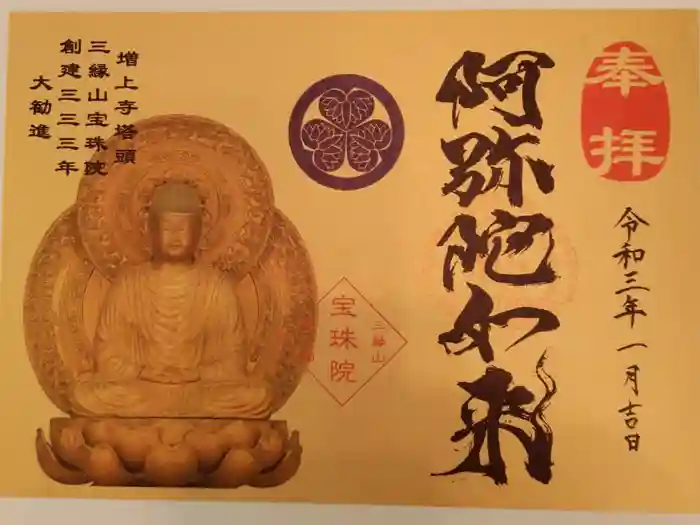 奉拝
令和三年一月吉日
阿弥陀如来
増上寺塔頭
三縁山宝珠院
創建三三三年
大勧進
三縁山
宝珠院